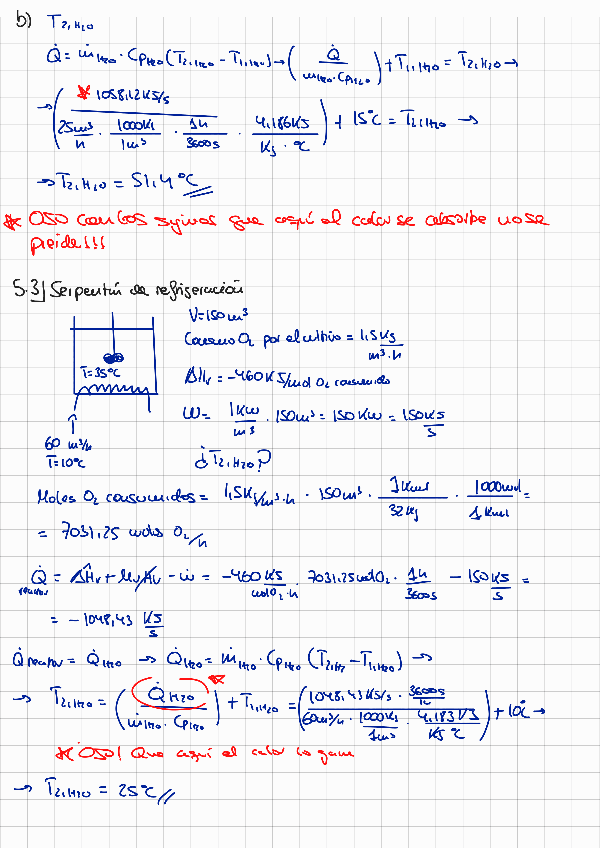 b) T₂,H₂O
Q̇ = ṁH₂O · CpH₂O (T₂,H₂O - T₁,H₂O) → (Q̇ / ṁH₂O · CpH₂O) + T₁,H₂O = T₂,H₂O →
→ (* 1058,12 KJ/s / 25m³/h · 1000Kg/1m³ · 1h/3600s · 4,186KJ/Kg · °C) + 15°C = T₂,H₂O →
→ T₂,H₂O = 51,4°C
* OJO con los signos que aquí el calor se absorbe no se
pierde!!!
5.3] Serpentín de refrigeración
V = 150m³
Consumo O₂ por el cultivo = 1,5Kg/m³·h
T = 35°C
ΔHr = -460KJ/mol O₂ consumido
W = 1Kw/m³ · 150m³ = 150Kw = 150KJ/s
60 m³/h
T = 10°C
¿T₂,H₂O?
Moles O₂ consumidos = 1,5Kg/m³·h · 150m³ · 1Kmol/32Kg · 1000mol/1Kmol =
= 7031,25 mols O₂/h
Q̇ reactor = ΔHr + - ẇ = -460KJ/molO₂·h · 7031,25molO₂ · 1h/3600s - 150KJ/s =
= -1048,43 KJ/s
Q̇ reactor = Q̇H₂O → Q̇H₂O = ṁH₂O · CpH₂O (T₂,H₂O - T₁,H₂O) →
→ T₂,H₂O = (Q̇H₂O * / ṁH₂O · CpH₂O) + T₁,H₂O = (1048,43KJ/s · 3600s/1h / 60m³/h · 1000Kg/1m³ · 4,183KJ/Kg °C) + 10°C →
* OJO! Que aquí el calor lo gana
→ T₂,H₂O = 25°C //